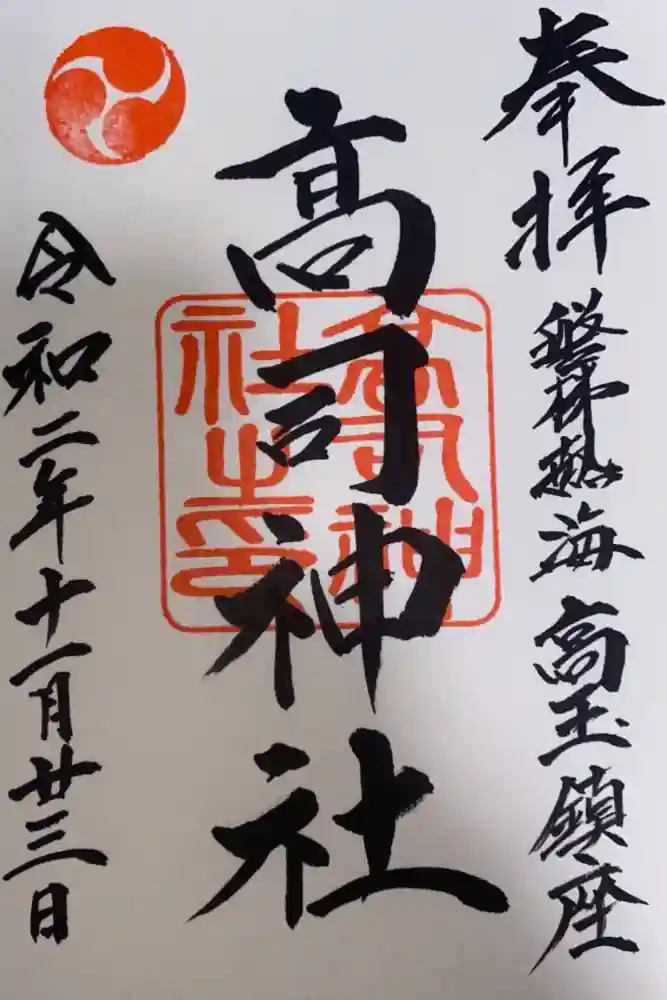 奉拝
磐梯熱海高玉鎮座
高司神社
高司神社之印
令和二年十一月廿三日